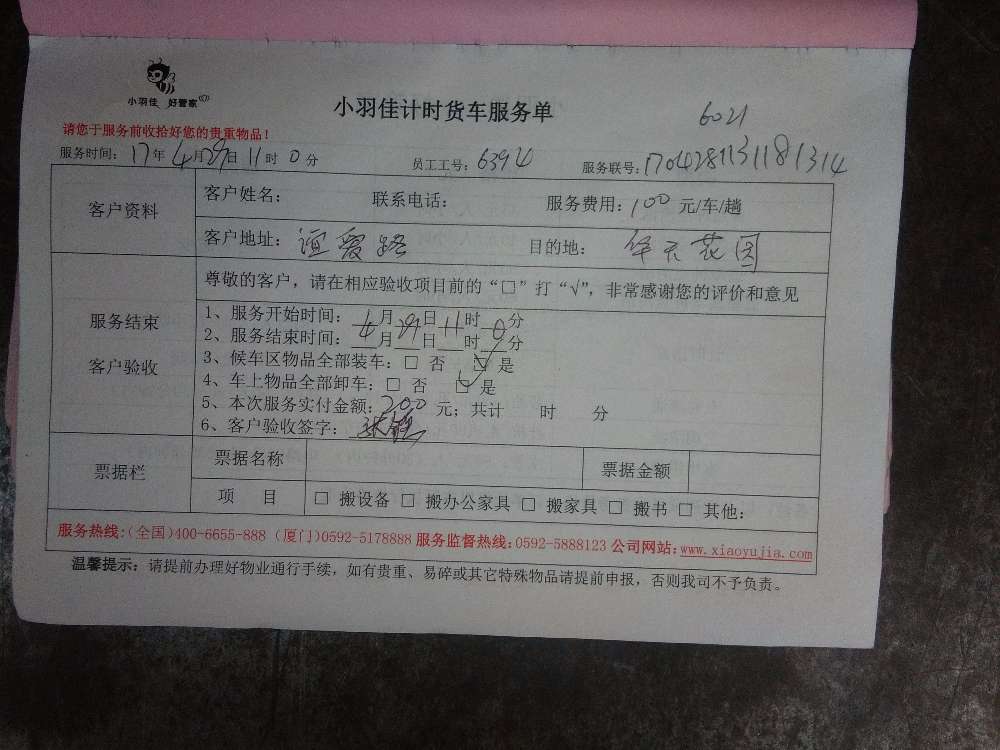 小羽佳 好管家
小羽佳计时货车服务单
6021
请您于服务前收拾好您的贵重物品！
服务时间：17年4月29日11时0分 员工工号：6394 服务联号：1704281131181314
客户资料 客户姓名： 联系电话： 服务费用：100元/车/趟
客户地址：谊爱路 目的地：华天花园
服务结束 客户验收
尊敬的客户，请在相应验收项目前的“□”打“√”，非常感谢您的评价和意见
1、服务开始时间：4月29日11时0分
2、服务结束时间：4月29日11时0分
3、候车区物品全部装车：□ 否 ☑ 是
4、车上物品全部卸车：□ 否 ☑ 是
5、本次服务实付金额：200元；共计 时 分
6、客户验收签字：
票据栏 票据名称 票据金额
项 目 □ 搬设备 □ 搬办公家具 □ 搬家具 □ 搬书 □ 其他：
服务热线:(全国)400-6655-888 (厦门)0592-5178888 服务监督热线:0592-5888123 公司网站:www.xiaoyujia.com
温馨提示：请提前办理好物业通行手续，如有贵重、易碎或其它特殊物品请提前申报，否则我司不予负责。